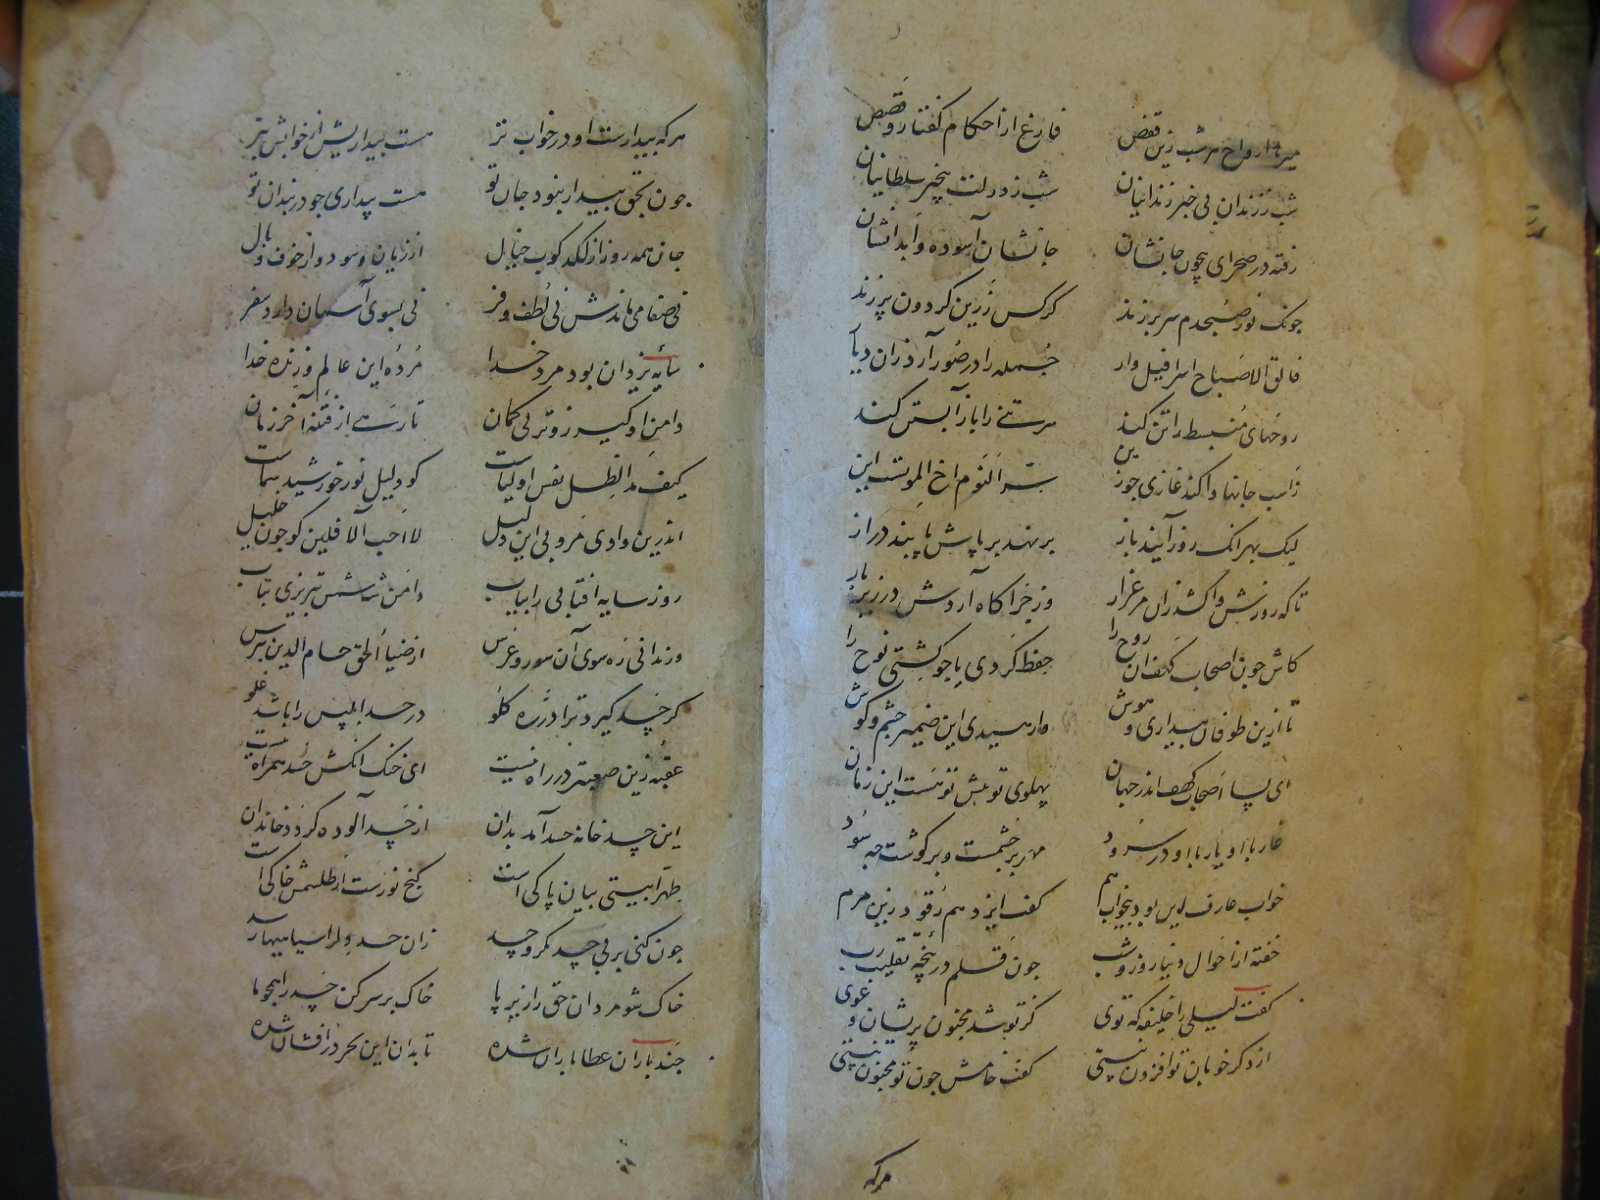 میرهد ارواح هر شب زین قفص فارغ از احکام گفتار و قصص
شب ززندان بی خبر زندانیان شب ز دولت بیخبر سلطانیان
رفته در صحرای بیچون جانشان جانشان آسوده و ابدانشان
چونک نور صبحدم سر بر زند کرکس زرین گردون پر زند
فالق الاصباح اسرافیل وار جمله را در صور آرد زان دیار
روحهای منبسط را تن کند هر تنی را باز آبستن کند
اسب جانها را کند عاری ز زین سر النوم اخ الموتست این
لیک بهر آنک روز آیند باز بر نهد بر پاش پابند دراز
تا که روزش واکشد زان مرغزار وز چراگاه آردش در زیر بار
کاش چون اصحاب کهف آن روح را حفظ کردی یا چو کشتی نوح را
تا ازین طوفان بیداری و هوش وارهیدی این ضمیر و چشم و گوش
ای بسا اصحاب کهف اندر جهان پهلوی تو پیش تو هست این زمان
غار با او یار با او در سرود مهر بر چشمست و بر گوشت چه سود
خواب عارف این بود بیخواب هم گفت ایزد هم رقود زین مرم
خفته از احوال دنیا روز و شب چون قلم در پنجهٔ تقلیب رب
گفت لیلی را خلیفه که توی کز تو شد مجنون پریشان و غوی
از دگر خوبان تو افزون نیستی گفت خامش چون تو مجنون نیستی
هرکه
هرکه بیدارست او در خواب تر هست بیداریش از خوابش بتر
چون بحق بیدار نبود جان تو هست بیداری چو در بندان تو
جان همه روز از لکدکوب خیال از زیان و سود و از خوف وبال
نی صفا می ماندش نی لطف و فر نی بسوی آسمان دارد سفر
سایهٔ یزدان بود مرد خدا مردهٔ این عالم و زنده خدا
دامن او گیر زوتر بی گمان تا رهی از فتنهٔ آخر زمان
کیف مد الظل نقش اولیاست کو دلیل نور خورشید سماست
اندرین وادی مرو بی این دلیل لا احب الآفلین گو چون خلیل
رو ز سایه آفتابی را بیاب دامن شه شمس تبریزی بتاب
ور ندانی ره سوی آن سور و عرس از ضیاء الحق حسام الدین بپرس
گر حسد گیرد ترا در ره گلو در حسد ابلیس را باشد غلو
عقبهٔ زین صعبتر در راه نیست ای خنک آنکش حسد همراه نیست
این جسد خانه حسد آمد بدان از حسد آلوده گردد خاندان
طهرا بیتی بیان پاکی است گنج نورست ار طلسمش خاکی است
چون کنی بر بی حسد مکر و حسد زان حسد دل را سیاهیها رسد
خاک شو مردان حق را زیر پا خاک بر سر کن حسد را همچو ما
چند باران عطا باران شده تا بدان این بحر در افشان شده